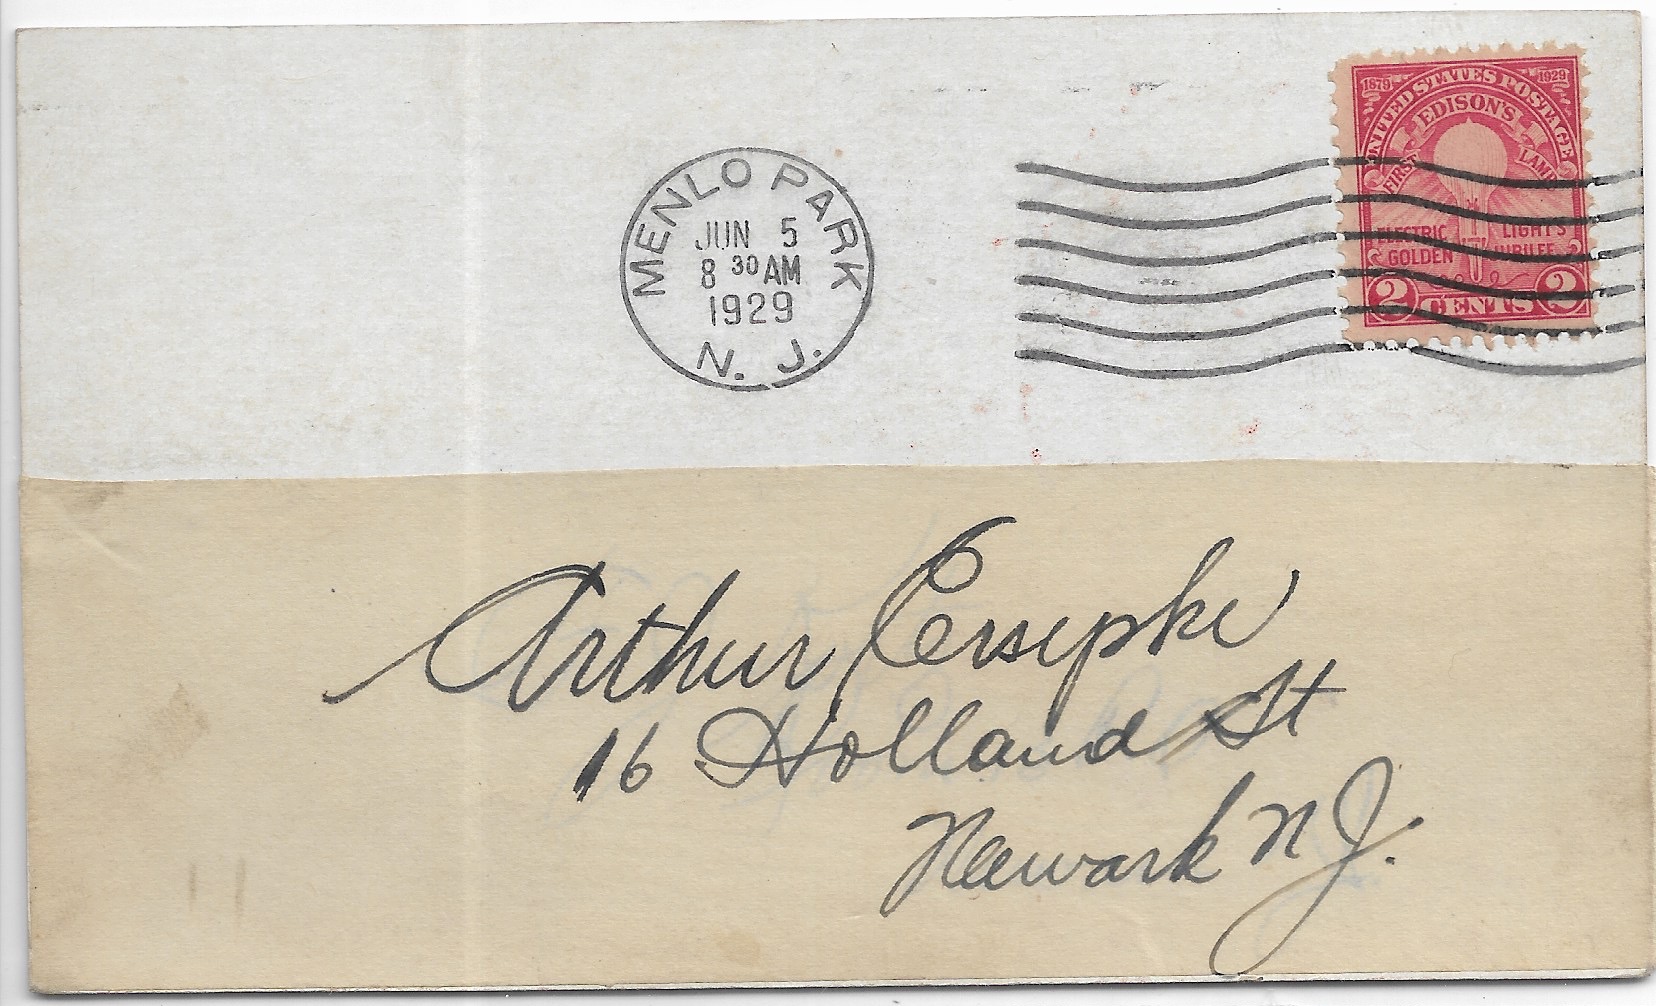 1879 1929
UNITED STATES POSTAGE
EDISON'S
FIRST LAMP
ELECTRIC LIGHT'S
GOLDEN JUBILEE
2 CENTS 2
MENLO PARK
JUN 5
8 30 AM
1929
N. J.
Arthur
16 Holland St
Newark N J.